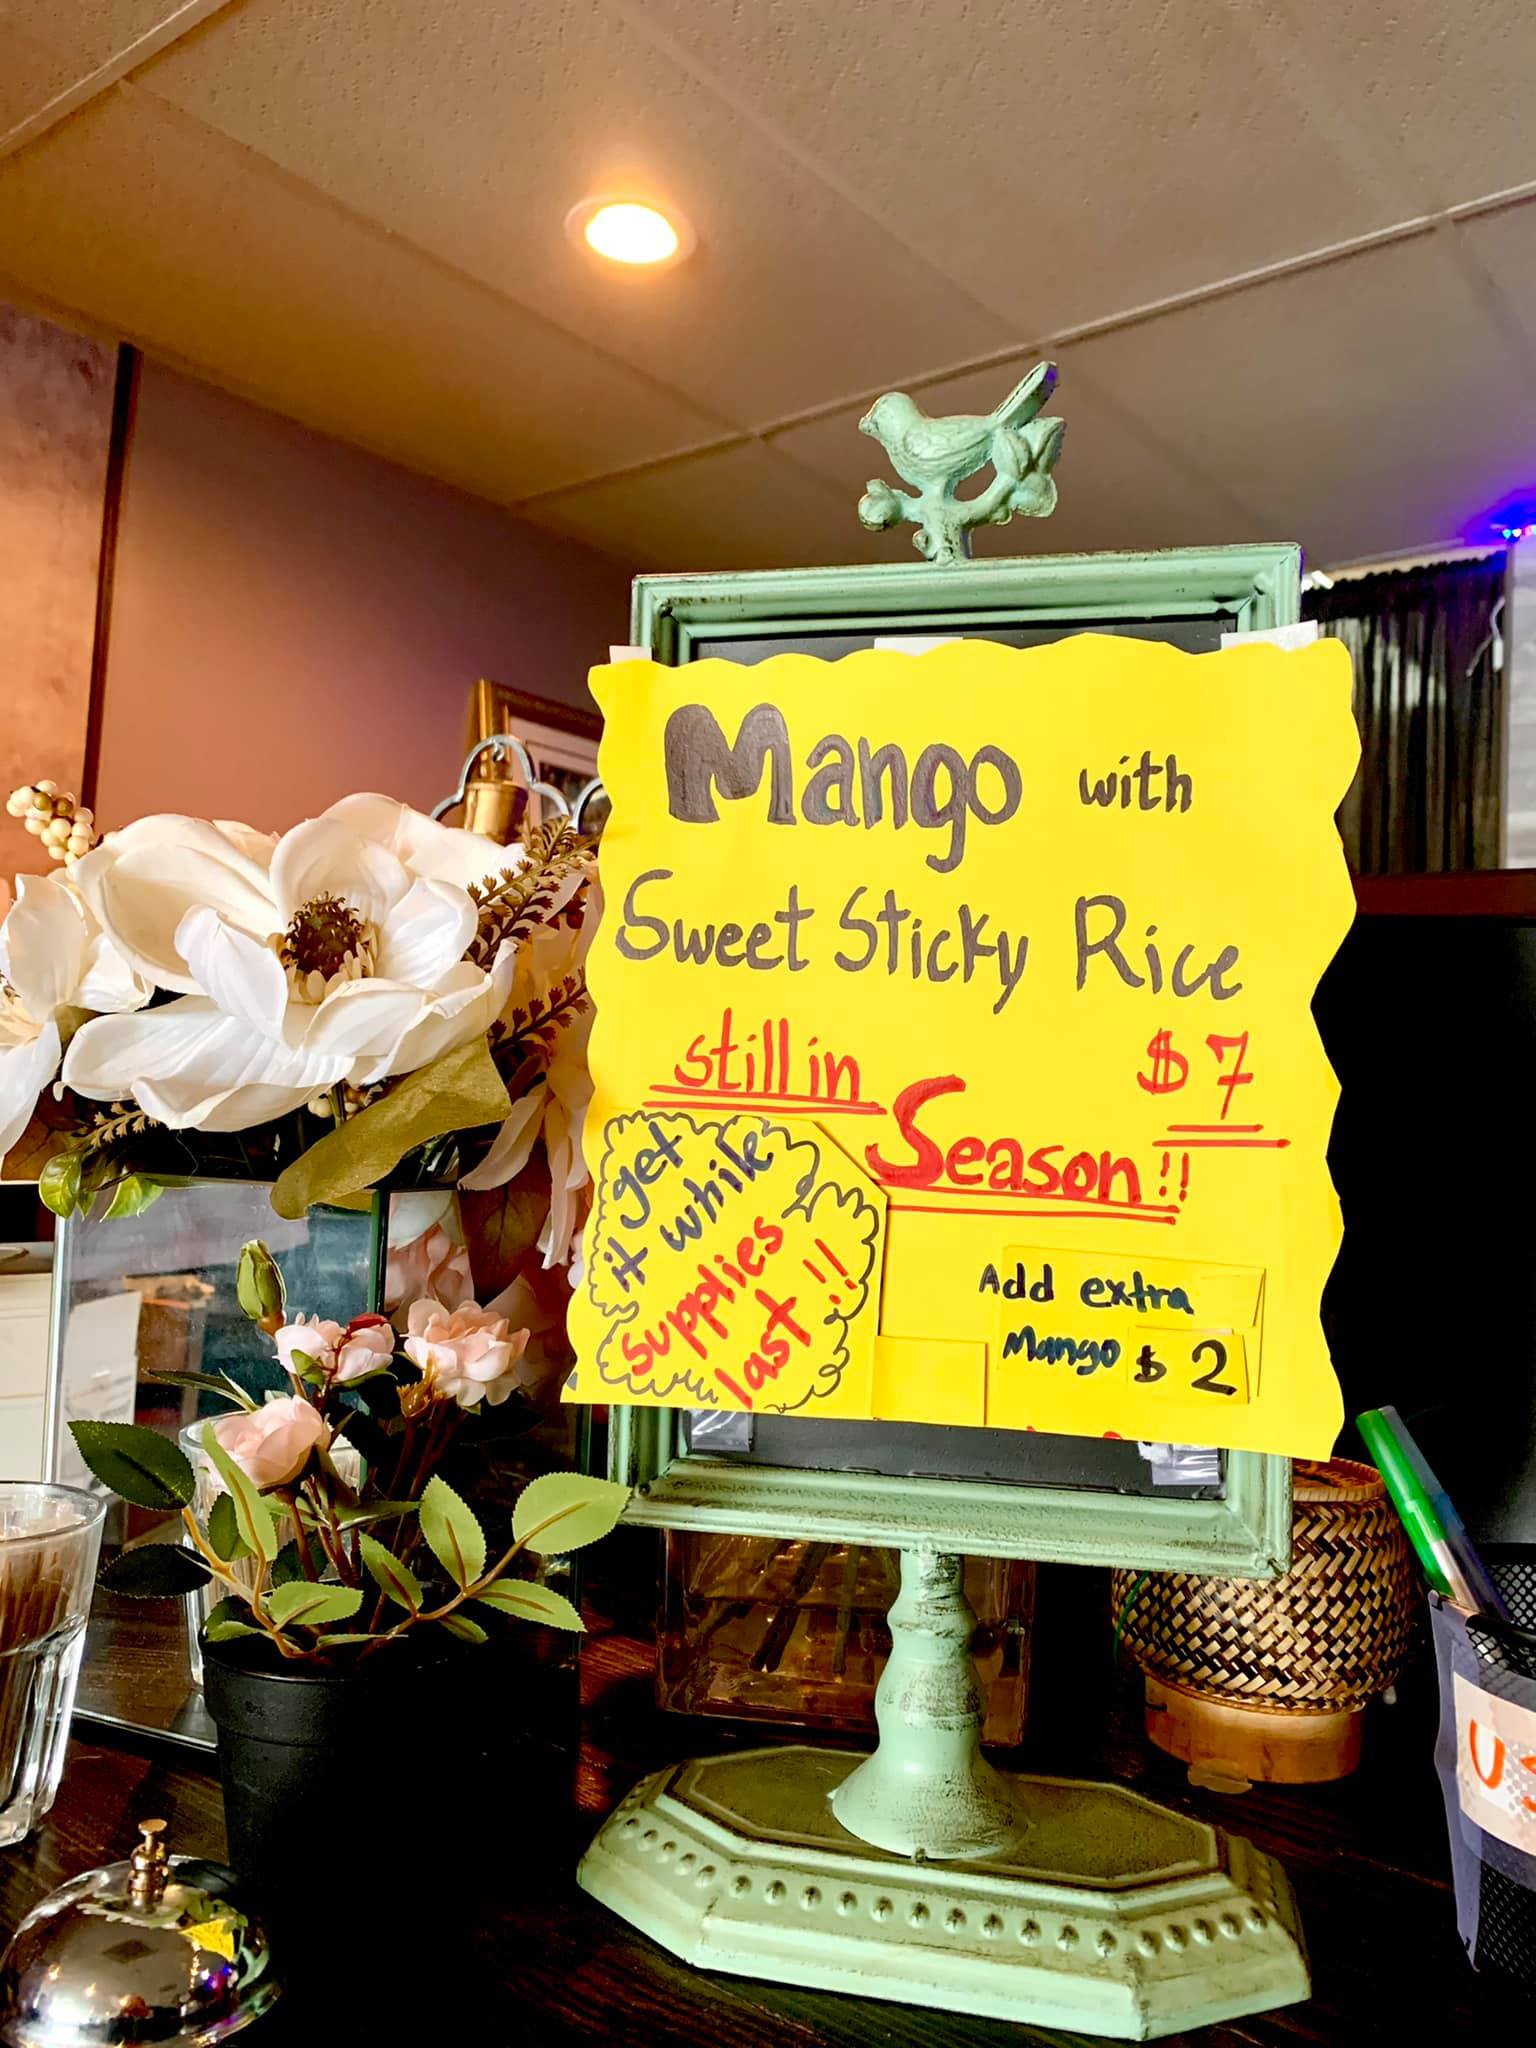 Mango with
Sweet Sticky Rice
still in
$7
Season!!
get
it while
supplies
last!!
Add extra
Mango $2